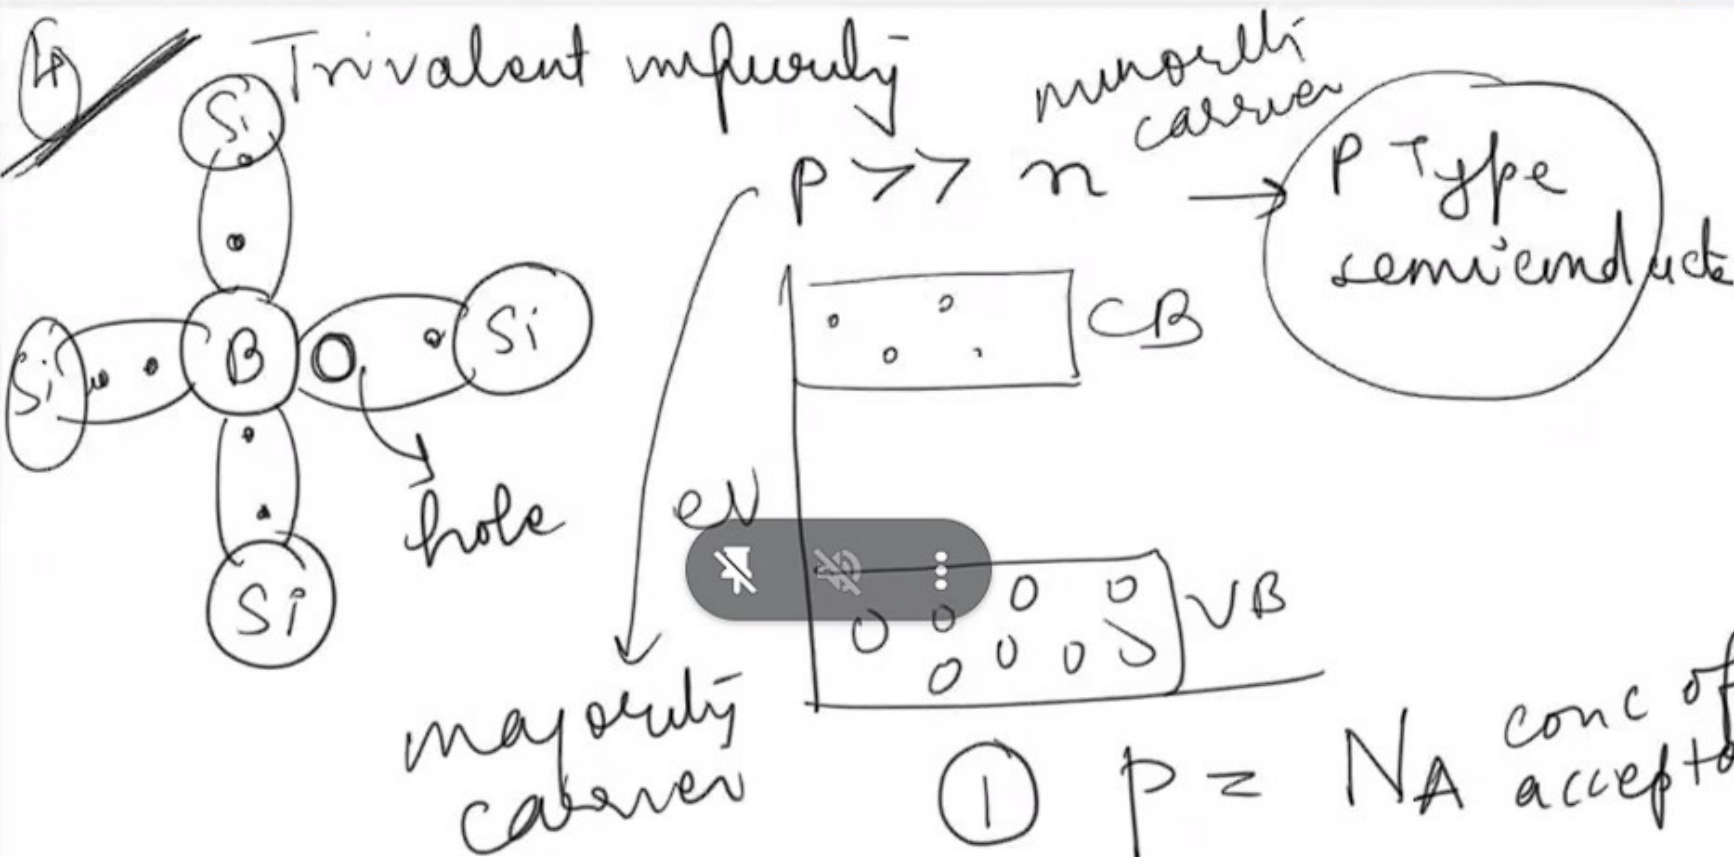 4
Trivalent impurity
minority
carrier
p >> n → P Type
semiconduct
Si
Si B Si
Si
hole
CB
eV
VB
majority
carrier
① p = NA conc of
accepto